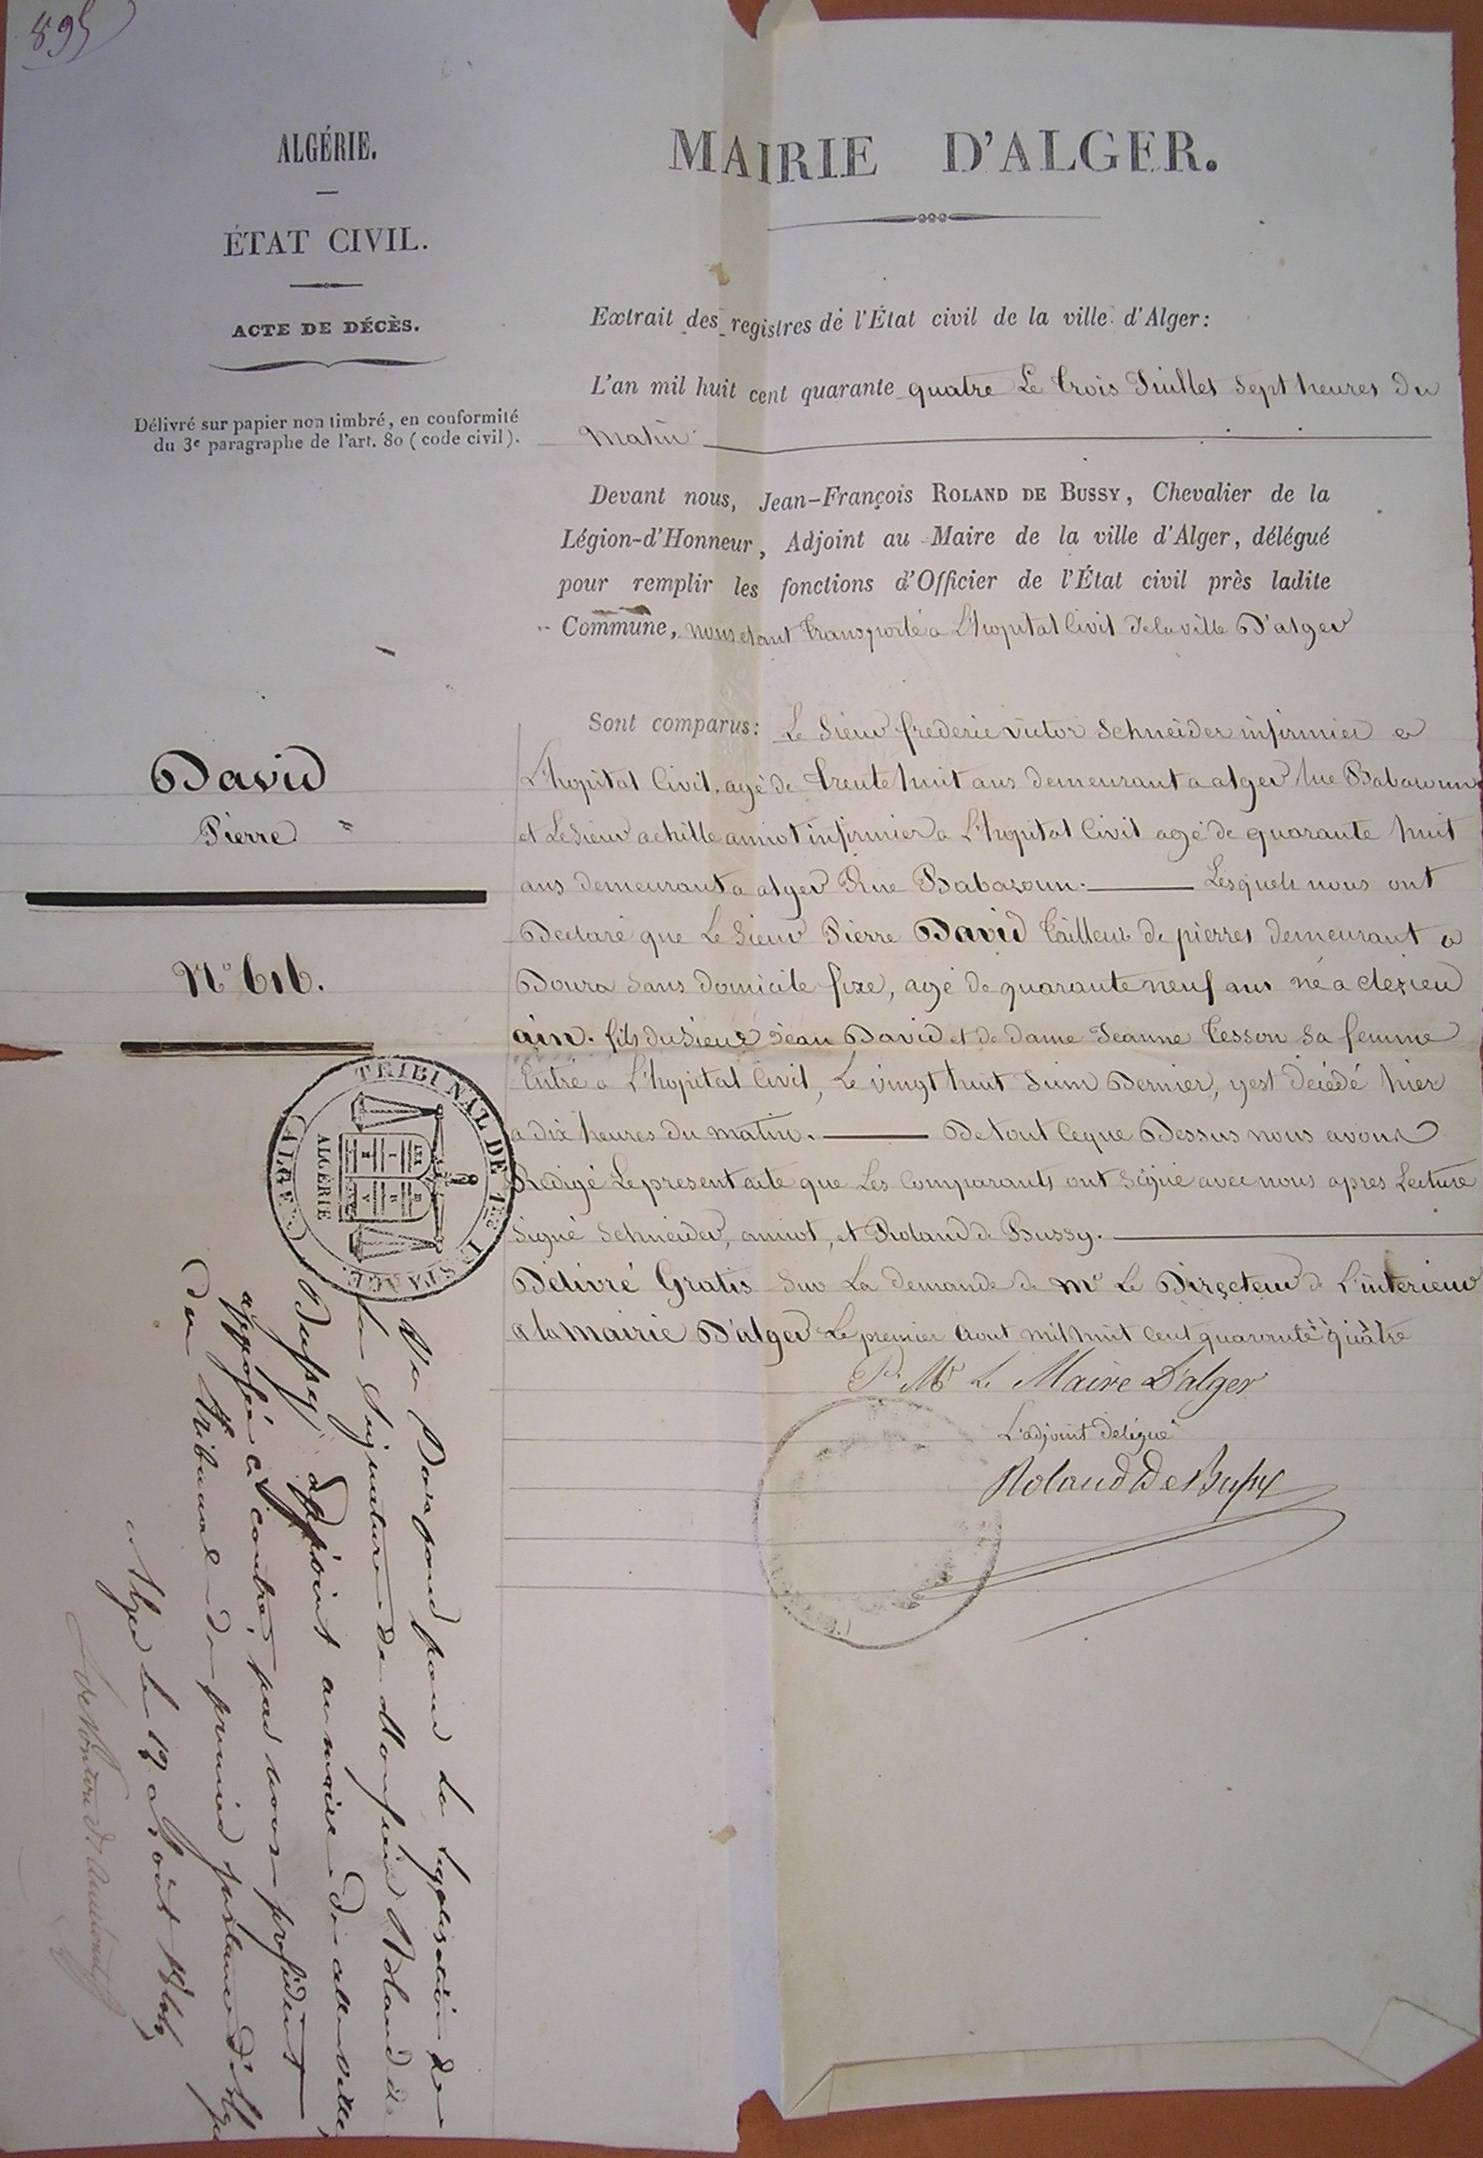 895
ALGÉRIE.
ÉTAT CIVIL.
ACTE DE DÉCÈS.
Délivré sur papier non timbré, en conformité
du 3e paragraphe de l'art. 80 (code civil).
David
Pierre
No 616.
MAIRIE D'ALGER.
Extrait des registres de l'État civil de la ville d'Alger:
L'an mil huit cent quarante quatre Le trois Juillet Sept heures du
Matin
Devant nous, Jean-François ROLAND DE BUSSY, Chevalier de la
Légion-d'Honneur, Adjoint au Maire de la ville d'Alger, délégué
pour remplir les fonctions d'Officier de l'État civil près ladite
Commune, nous etant transporté a L'hopital Civil de la ville D'alger
Sont comparus: Le Sieur frederic victor Schneider infirmier a
L'hopital Civil, agé de trente huit ans demeurant a alger Rue Babazoun
et Le Sieur achille amiot infirmier a L'hopital Civil agé de quarante huit
ans demeurant a alger Rue Babazoun. Lesquels nous ont
Declaré que Le Sieur Pierre David tailleur de pierres demeurant a
Doura Sans domicile fixe, agé de quarante neuf ans né a clezieu
ain. fils du Sieur Jean David et de dame Jeanne Tesson Sa femme
Entré a L'hopital Civil, Le vingt huit Juin Dernier, y est décédé hier
a dix heures du matin. De tout ce que Dessus nous avons
Rédigé Le present acte que Les Comparants ont Signé avec nous apres Lecture
Signé Schneider, amiot, et Roland de Bussy.
Délivré Gratis Sur La demande de Mr Le Directeur de L'interieur
a la mairie D'alger Le premier aout mil huit Cent quarante quatre
Pr Mr Le Maire D'alger
L'adjoint délégué
Roland De Bussy
TRIBUNAL DE 1re INSTANCE. (ALGER)
ALGÉRIE
Vu par nous pour la legalisation de
la signature de Monsieur Roland de
Bussy, adjoint au maire de cette ville,
apposée ci contre, par nous président
du tribunal de première instance d'Alger
Alger le 12 Août 1844